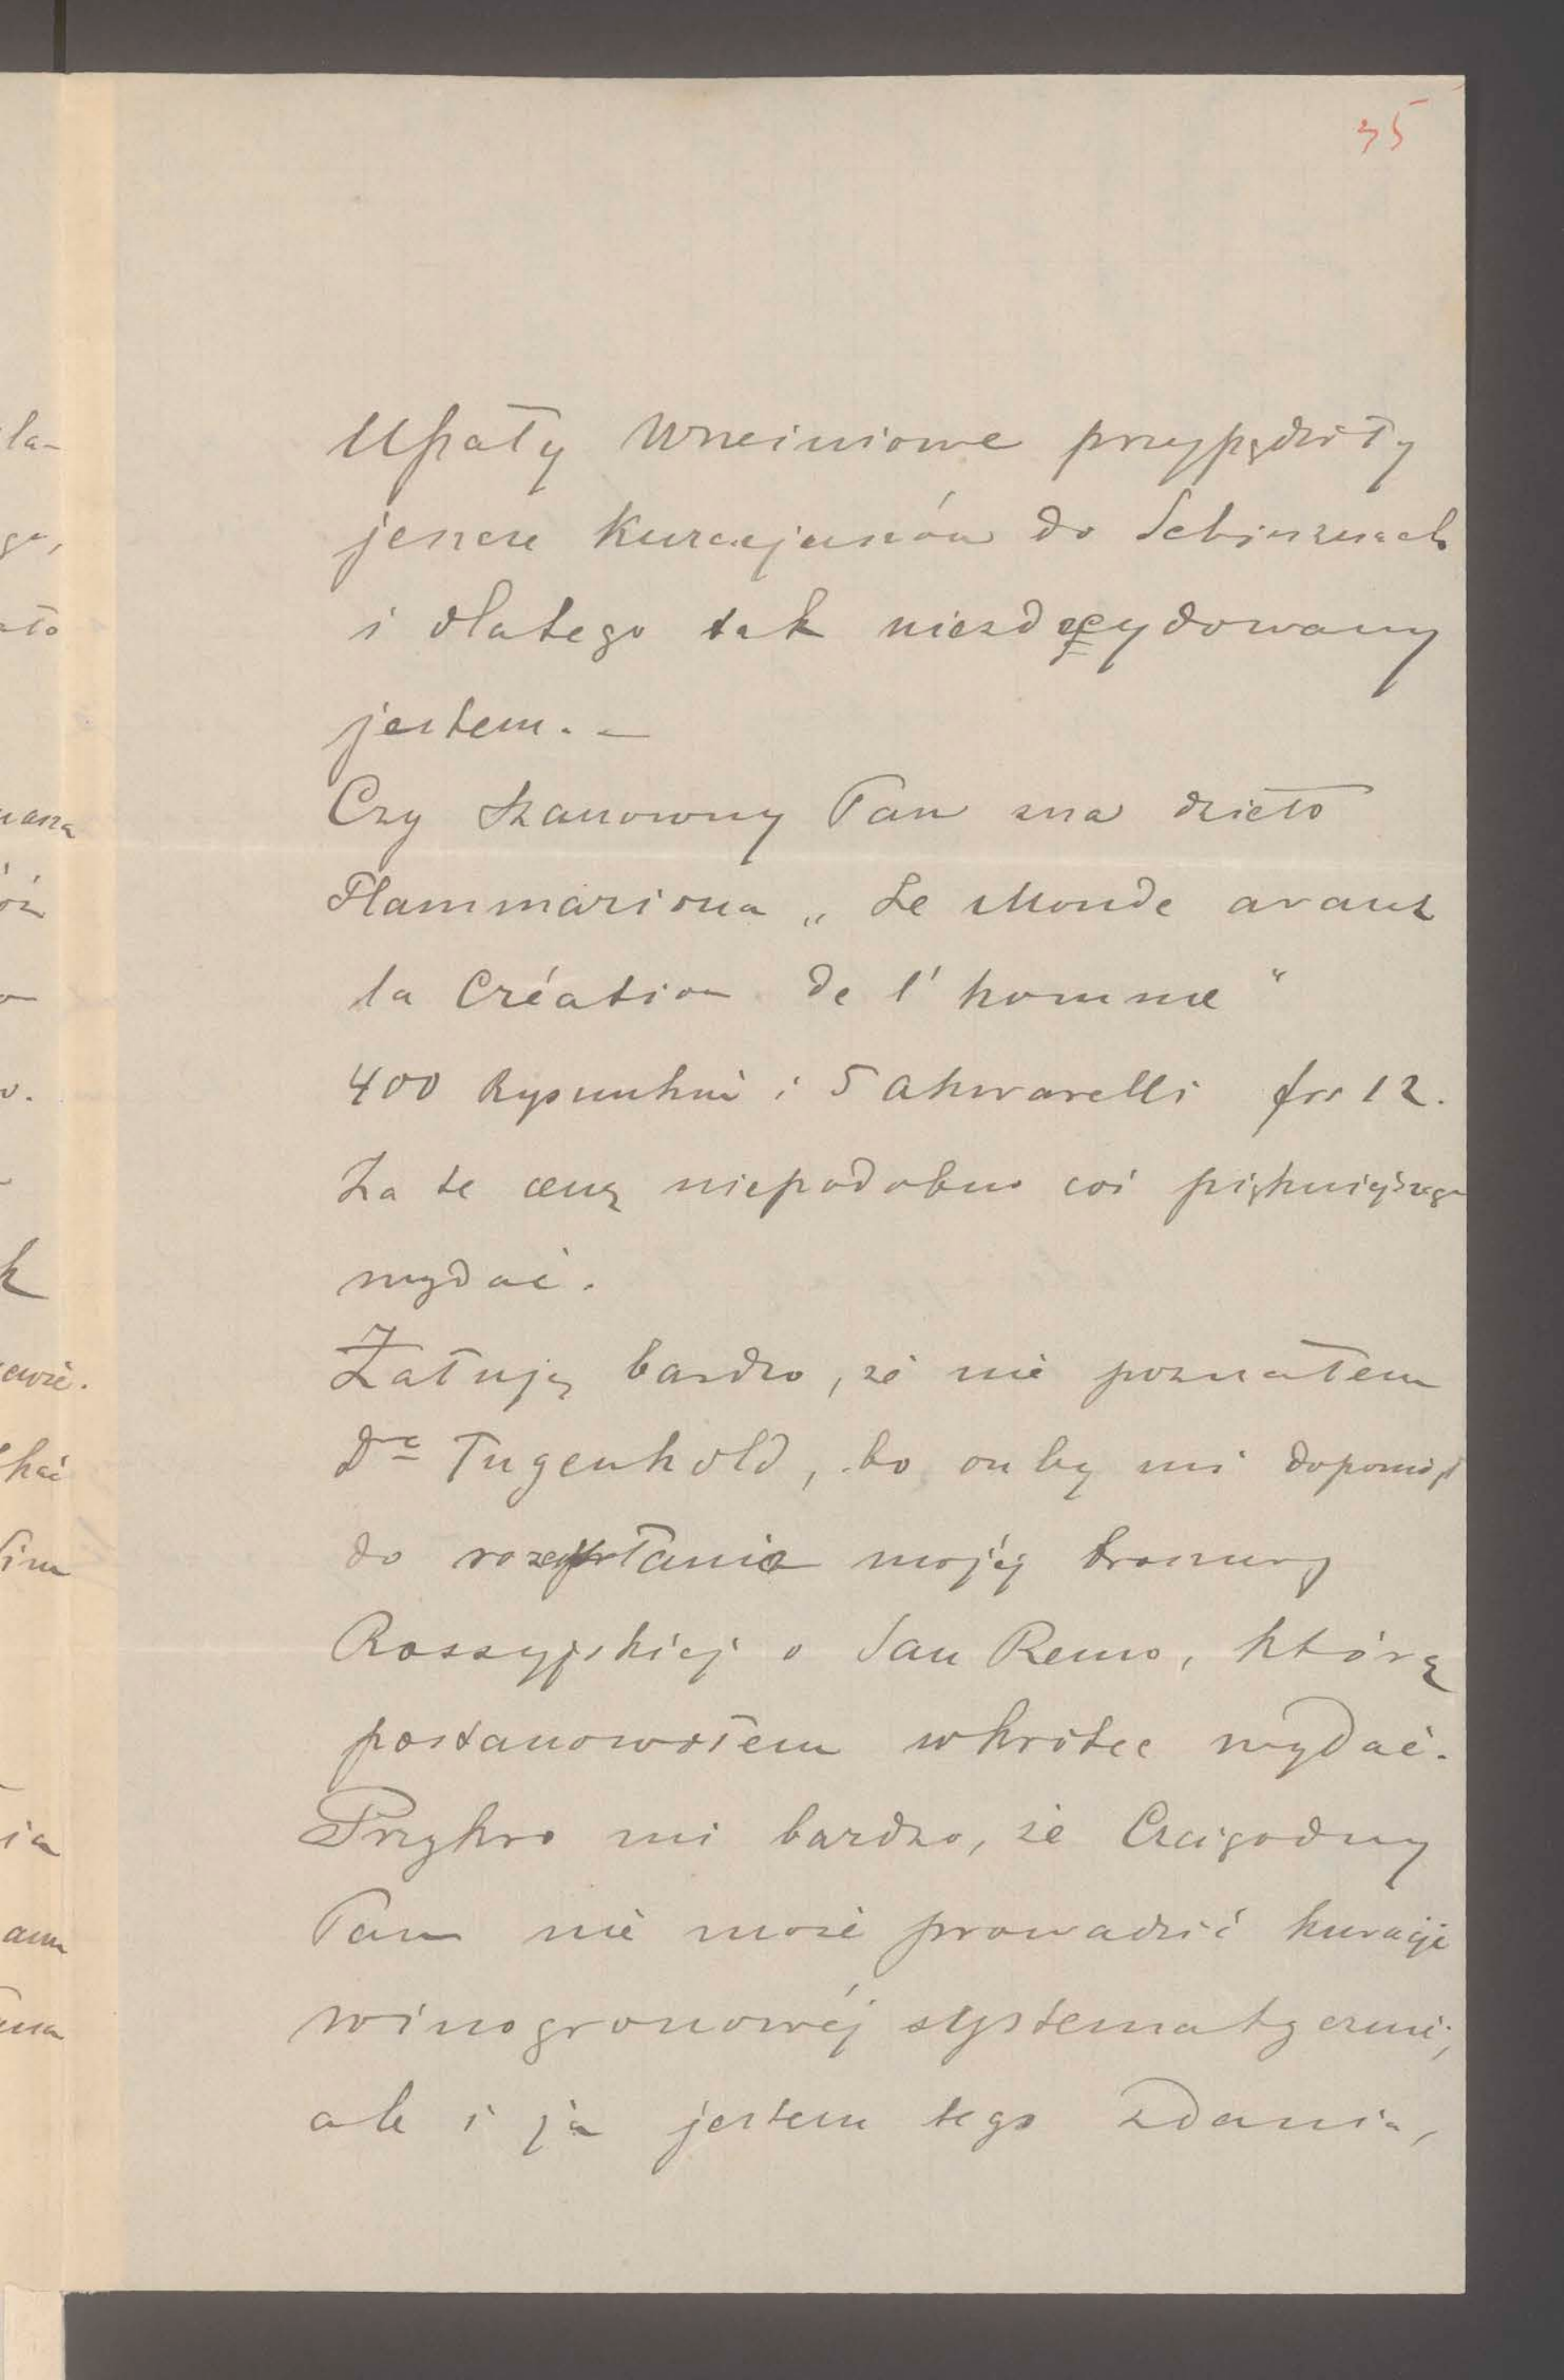 35
Upały Wrześniowe przypędziły
jeszcze Kuracjuszów do Schinznach
i dlatego tak niezdecydowany
jestem. –
Czy Szanowny Pan zna dzieło
Flammariona „Le Monde avant
la Création de l'homme"
400 Rysunków i 5 Akwarelli frs 12.
Za te cenę niepodobno coś piękniejszego
wydać.
Żałuję bardzo, że nie poznałem
Dra Tugenhold, bo on by mi dopomógł
do rozesłania mojéj broszury
Rossyjskiej o San Remo, którą
postanowiłem wkrótce wydać.
Przykro mi bardzo, że Czcigodny
Pan nie może prowadzić kuracje
winogronowéj systematycznie,
ale i ja jestem tego zdania,